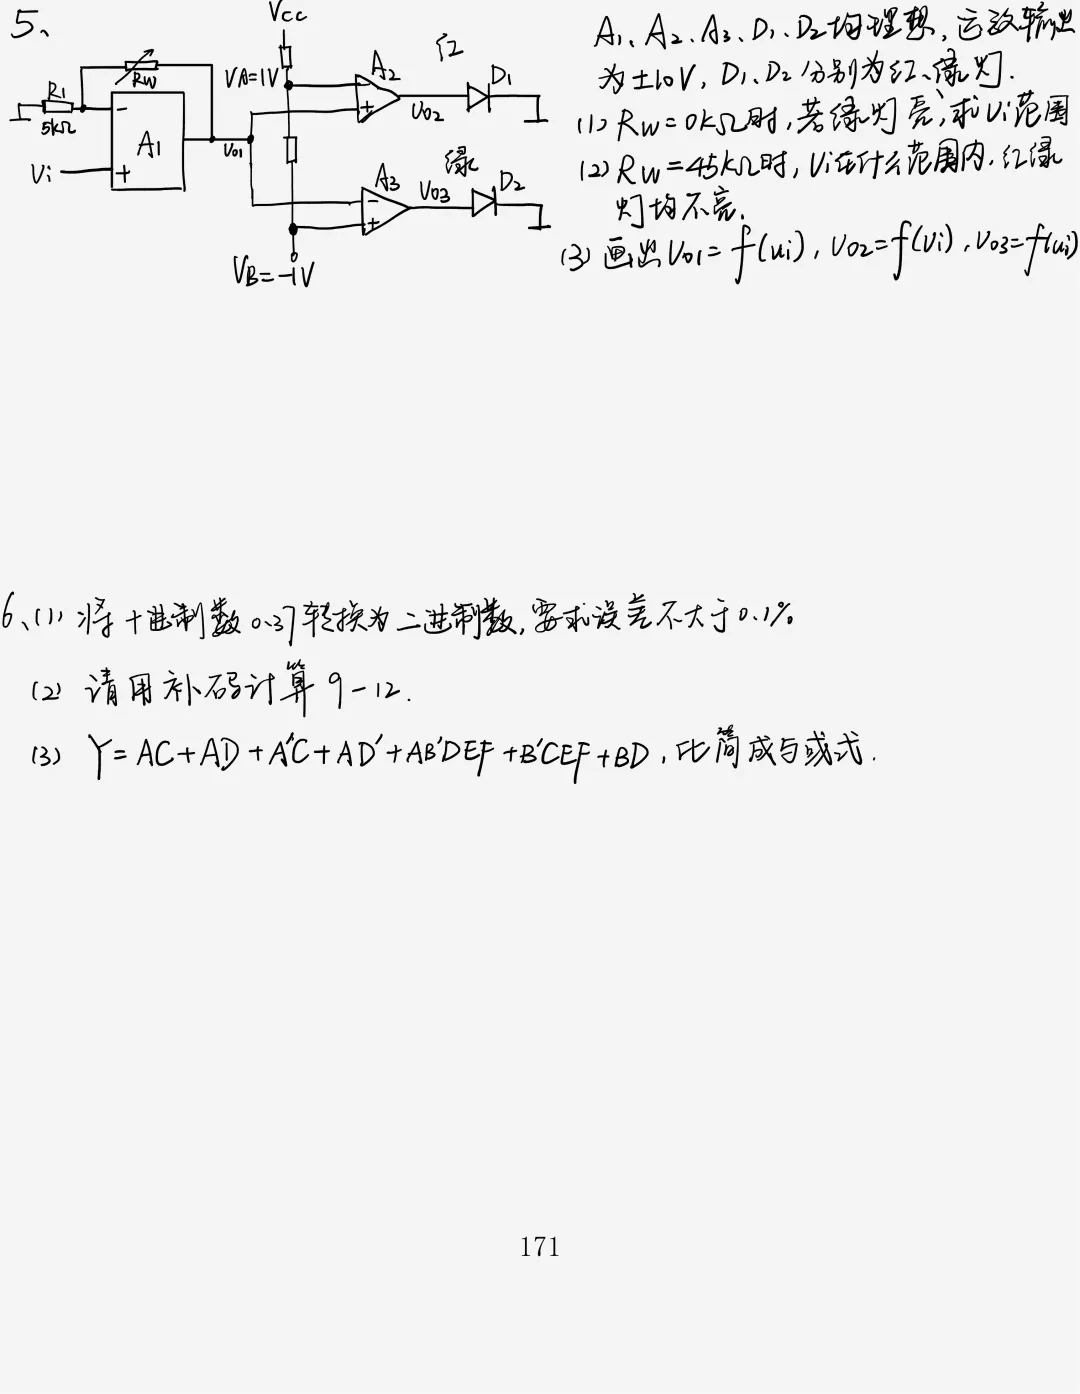 5、
Vcc
红
VA=1V
A2
D1
R1
RW
5kΩ
A1
Vi
Vo1
Vo2
绿
A3
Vo3
D2
VB=-1V
A1、A2、A3、D1、D2均理想,运放输出
为±10V,D1、D2分别为红、绿灯.
(1) RW=0kΩ时,若绿灯亮,求Vi范围
(2) RW=45kΩ时,Vi在什么范围内,红绿
灯均不亮.
(3) 画出Vo1=f(ui),Vo2=f(Vi),Vo3=f(ui)
6、(1) 将十进制数0.37转换为二进制数,要求误差不大于0.1%
(2) 请用补码计算9-12.
(3) Y=AC+AD+A'C+AD'+AB'DEF+B'CEF+BD,化简成与或式.
171